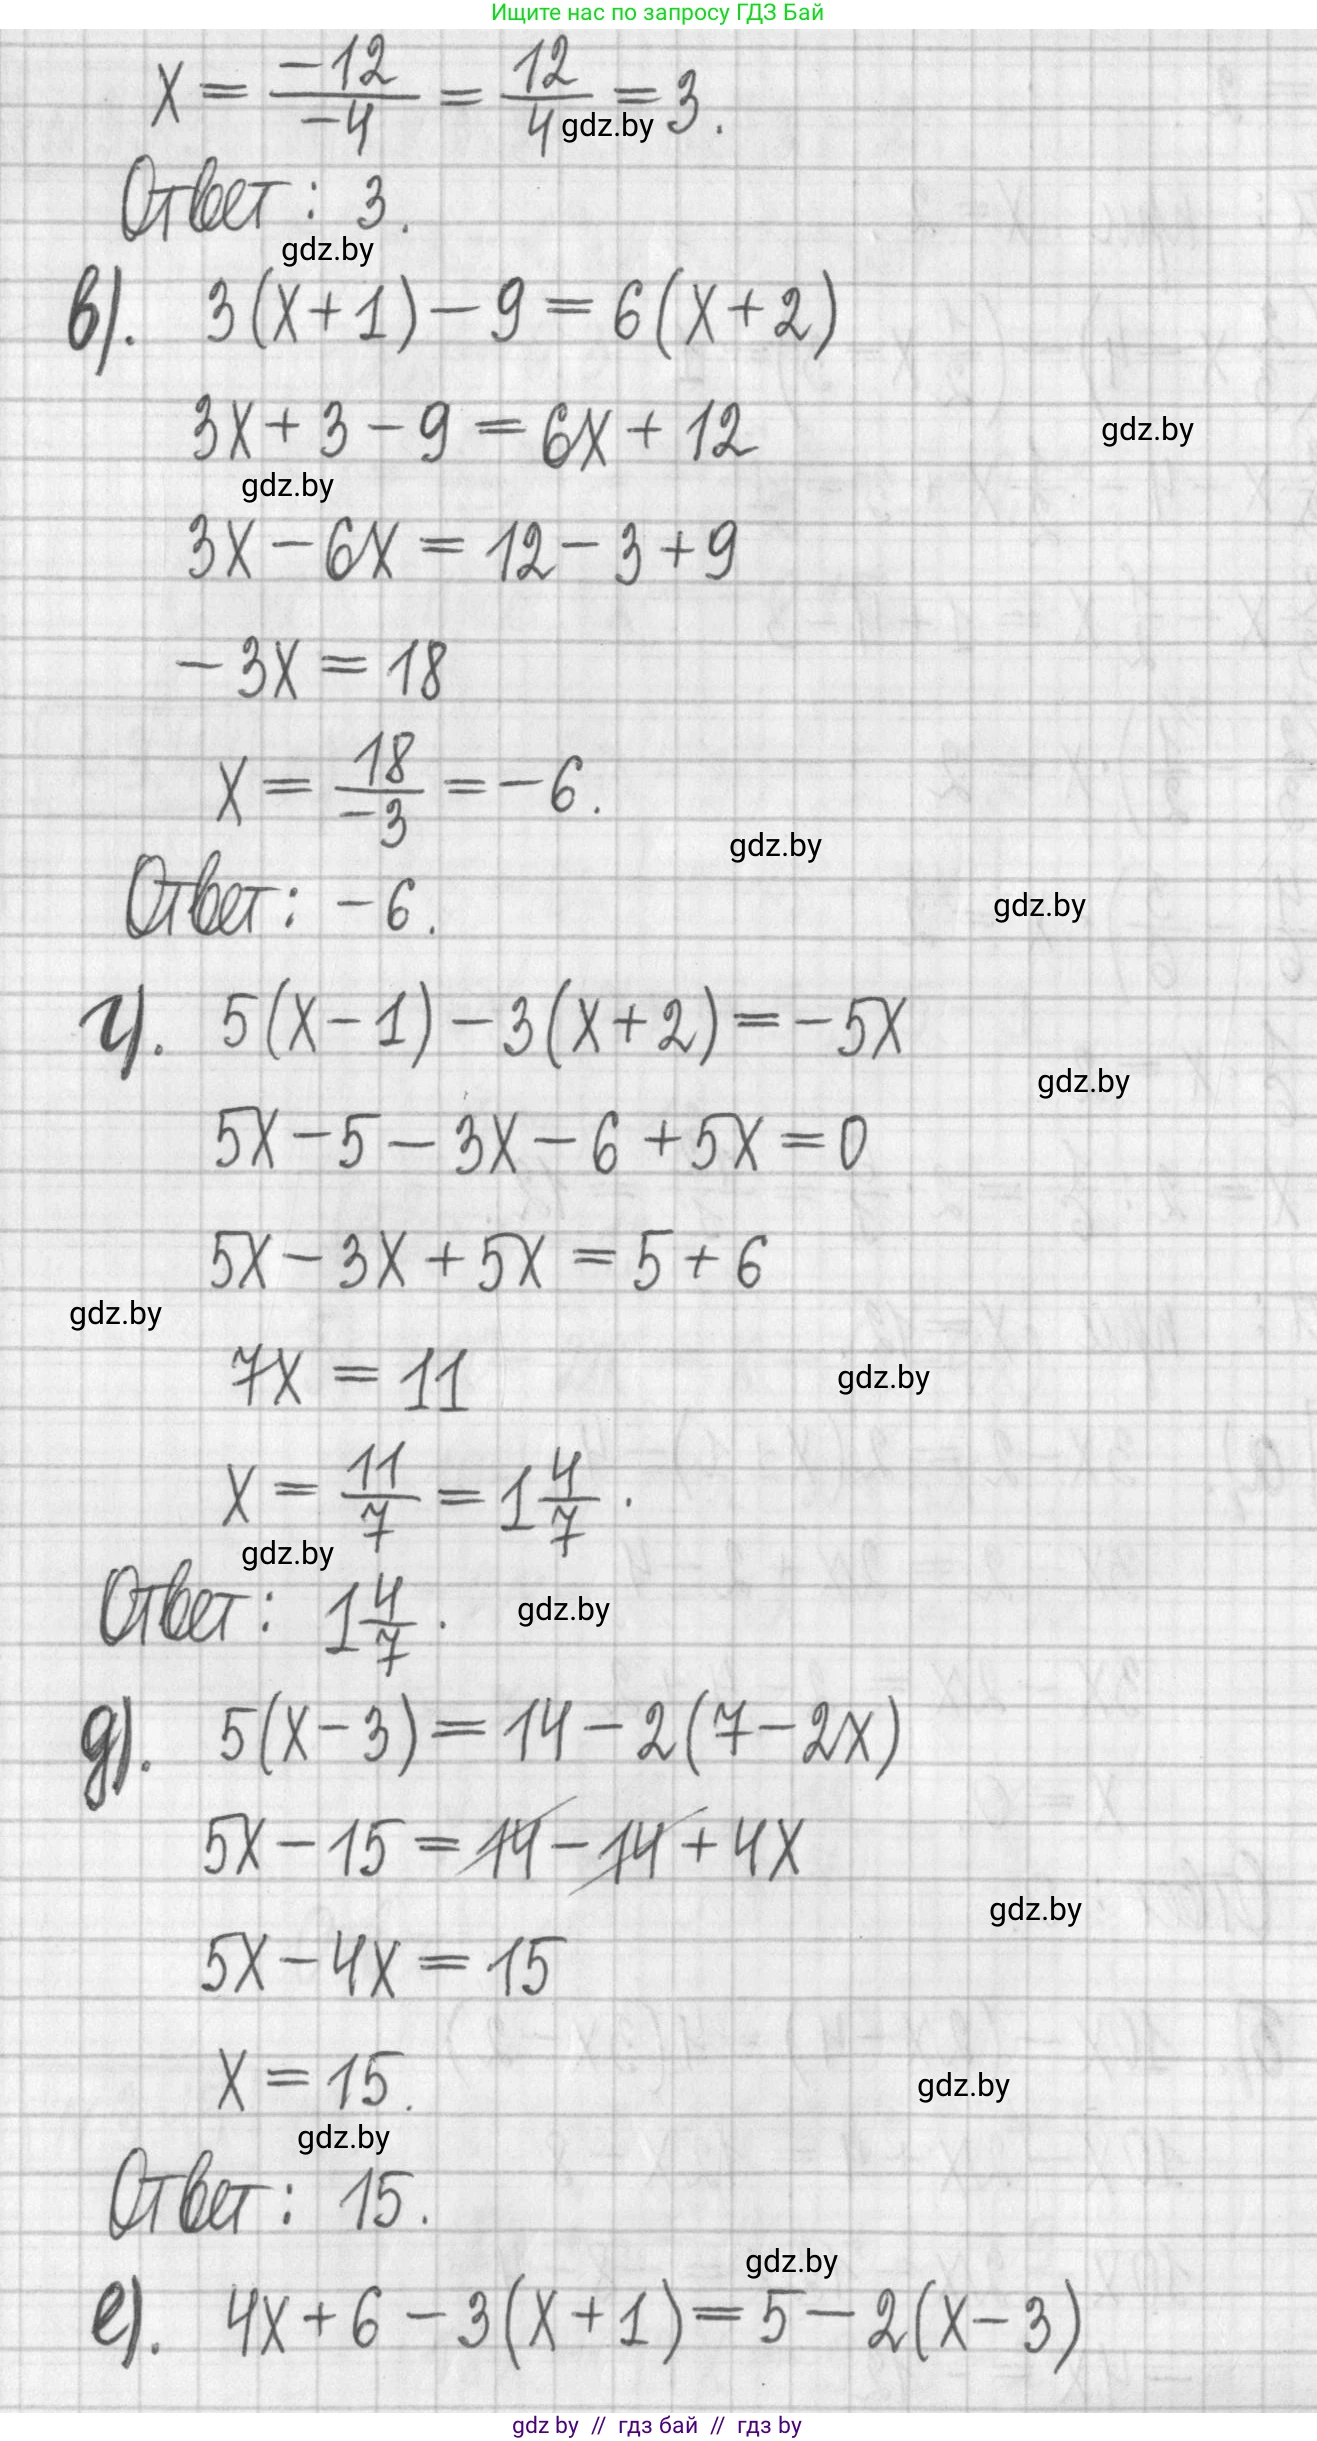 Ищите нас по запросу ГДЗ Бай
x = -12/-4 = 12/4 = 3.
gdz.by
Ответ: 3.
gdz.by
в). 3(x+1)-9=6(x+2)
3x+3-9=6x+12
gdz.by
gdz.by
3x-6x=12-3+9
-3x=18
x = 18/-3 = -6.
gdz.by
Ответ: -6.
gdz.by
г). 5(x-1)-3(x+2)=-5x
gdz.by
5x-5-3x-6+5x=0
5x-3x+5x=5+6
gdz.by
7x=11
gdz.by
x = 11/7 = 1 4/7.
gdz.by
Ответ: 1 4/7.
gdz.by
д). 5(x-3)=14-2(7-2x)
5x-15=14-14+4x
gdz.by
5x-4x=15
x=15.
gdz.by
gdz.by
Ответ: 15.
gdz.by
е). 4x+6-3(x+1)=5-2(x-3)
gdz by // гдз бай // гдз by